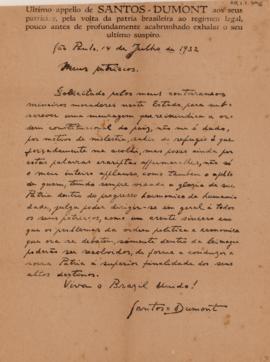 Ultimo appello de SANTOS-DUMONT aos seus
patricios, pela volta da patria brasileira ao regimen legal,
pouco antes de profundamente acabrunhado exhalar o seu
ultimo suspiro.
São Paulo, 14 de Julho de 1932
Meus patricios.
Solicitado pelos meus conterraneos
mineiros moradores neste Estado para sub-
screver uma mensagem que reivindica a or-
dem constitucional do paiz, não me é dado,
por motivos de molestia, sahir do refugio á que
forçadamente me acolhi, mas posso ainda por
estas palavras escriptas affirmar-lhes, não só
o meu inteiro applauso, como tambem o appello
de quem, tendo sempre visado a gloria de sua
Patria dentro do progresso harmonico da humani-
dade, julga poder dirigir-se em geral a todos
os seus patricios, como um crente sincero em
que os problemas da ordem politica e economica
que ora se debatem, somente dentro da lei magna
poderão ser resolvidos, de forma a conduzir a
nossa Patria á superior finalidade dos seus
altos destinos.
Viva o Brazil Unido!
Santos=Dumont